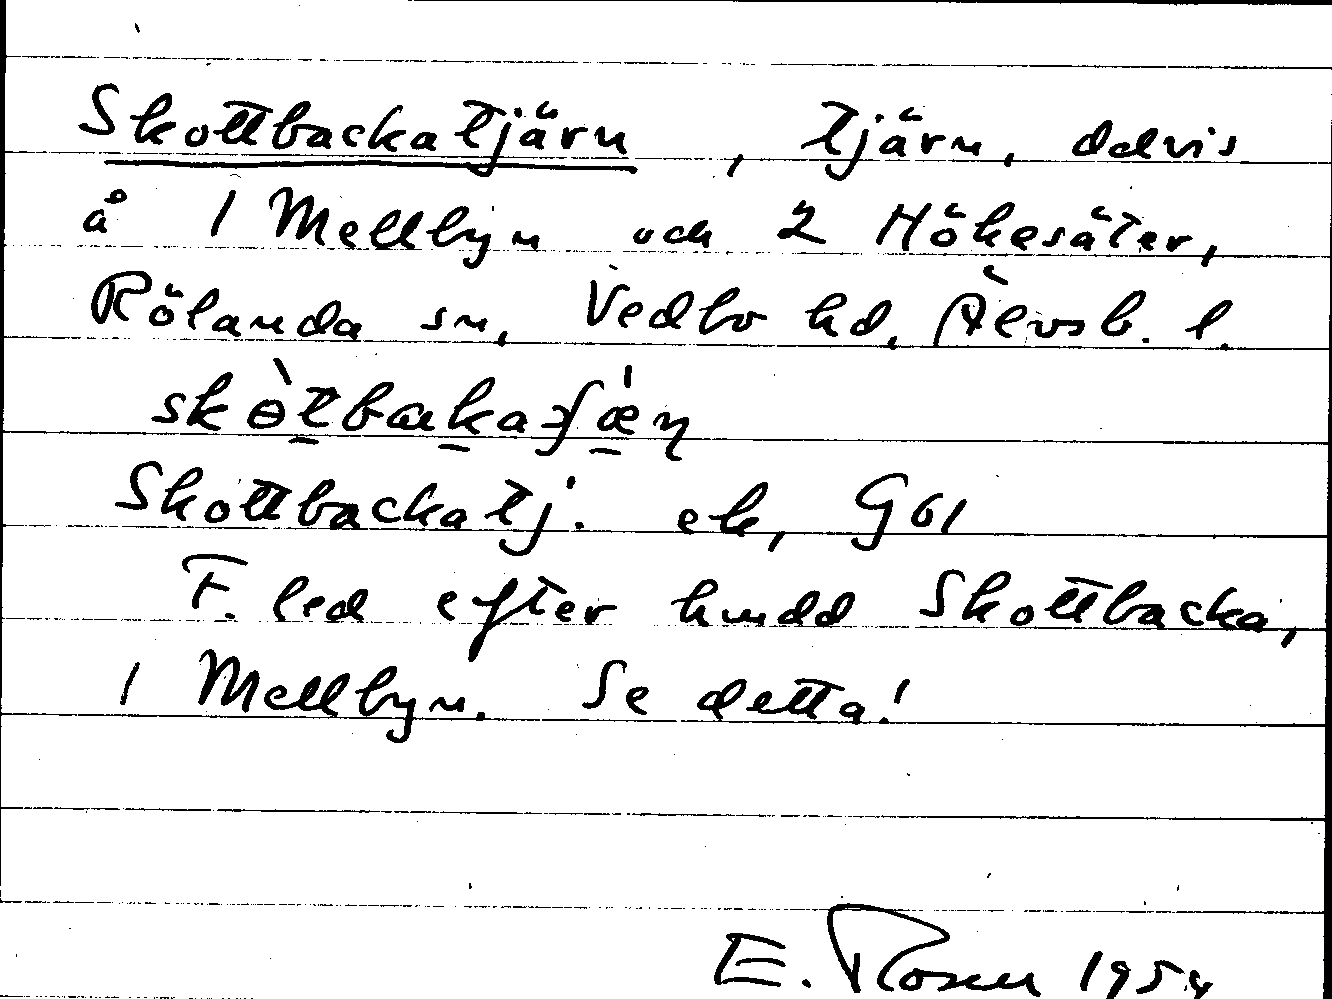 Skottbackatjärn, tjärn, delvis
å 1 Mellbyn och 2 Hökesäter,
Rölanda sn, Vedbo hd, Älvsb. l.
Skottbackatj. ek, G61
F. led efter hmdd Skottbacka,
1 Mellbyn. Se detta!
E. Rosen 1954